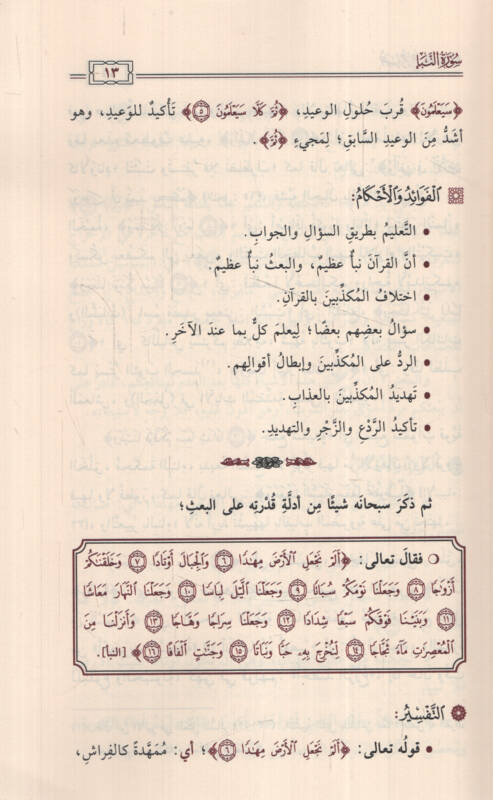 سُورَةُ النَّبَإِ
١٣
﴿سَيَعْلَمُونَ﴾ قُربَ حُلولِ الوعيدِ، ﴿ثُمَّ كَلَّا سَيَعْلَمُونَ ۝٥﴾ تَأكيدٌ للوَعيدِ، وهو
أشَدُّ مِنَ الوعيدِ السَّابقِ؛ لِمَجيءِ ﴿ثُمَّ﴾.
الفَوَائِدُ وَالأَحْكَامُ:
• التَّعليمُ بطريقِ السؤالِ والجوابِ.
• أنَّ القرآنَ نبأٌ عظيمٌ، والبعثُ نبأٌ عظيمٌ.
• اختلافُ المُكذِّبينَ بالقرآنِ.
• سؤالُ بعضِهم بعضًا؛ لِيعلمَ كلٌّ بما عندَ الآخَرِ.
• الردُّ على المُكذِّبينَ وإبطالُ أقوالِهم.
• تَهديدُ المُكذِّبينَ بالعذابِ.
• تأكيدُ الرَّدْعِ والزَّجْرِ والتهديدِ.
ثم ذكَرَ سبحانَه شيئًا مِن أدلَّةِ قُدْرَتِه على البعثِ؛
○ فقال تعالى: ﴿أَلَمْ نَجْعَلِ الْأَرْضَ مِهَادًا ۝٦ وَالْجِبَالَ أَوْتَادًا ۝٧ وَخَلَقْنَاكُمْ
أَزْوَاجًا ۝٨ وَجَعَلْنَا نَوْمَكُمْ سُبَاتًا ۝٩ وَجَعَلْنَا اللَّيْلَ لِبَاسًا ۝١٠ وَجَعَلْنَا النَّهَارَ مَعَاشًا
۝١١ وَبَنَيْنَا فَوْقَكُمْ سَبْعًا شِدَادًا ۝١٢ وَجَعَلْنَا سِرَاجًا وَهَّاجًا ۝١٣ وَأَنزَلْنَا مِنَ
الْمُعْصِرَاتِ مَاءً ثَجَّاجًا ۝١٤ لِّنُخْرِجَ بِهِ حَبًّا وَنَبَاتًا ۝١٥ وَجَنَّاتٍ أَلْفَافًا ۝١٦﴾ [النبأ].
التَّفْسِيرُ:
• قولُه تعالى: ﴿أَلَمْ نَجْعَلِ الْأَرْضَ مِهَادًا ۝٦﴾؛ أي: مُمَهَّدةً كالفِراشِ،